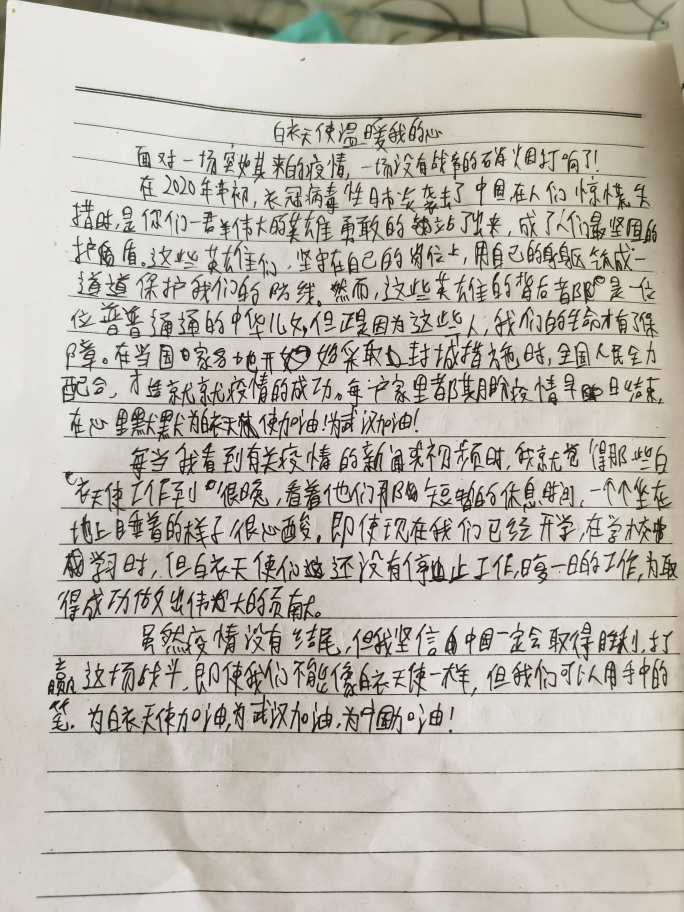 白衣天使温暖我的心
面对一场突如其来的疫情,一场没有战争的硝烟打响了!
在2020年年初,衣冠病毒性肺炎袭击了中国在人们惊慌失
措时,是你们一群伟大的英雄勇敢的站了出来,成了人们最坚固的
护盾。这些英雄们,坚守在自己的岗位上,用自己的身躯筑成一
道道保护我们的防线。然而,这些英雄的背后都是一位
位普普通通的中华儿女,但正是因为这些人,我们的生命才有了保
障。在当国家各地开始采取封城措施时,全国人民全力
配合,才造就就疫情的成功。每一户家里都期盼疫情早日结束,
在心里默默为白衣天使加油,为武汉加油!
每当我看到有关疫情的新闻或视频时,我就觉得那些白
衣天使工作到很晚,看着他们那短暂的休息时间,一个个坐在
地上睡着的样子很心酸。即使现在我们已经开学,在学校中
学习时,但白衣天使们还没有停止工作,日复一日的工作,为取
得成功做出伟大的贡献。
虽然疫情没有结尾,但我坚信中国一定会取得胜利,打
赢这场战斗,即使我们不能像白衣天使一样,但我们可以用手中的
笔,为白衣天使加油,为武汉加油,为中国加油!